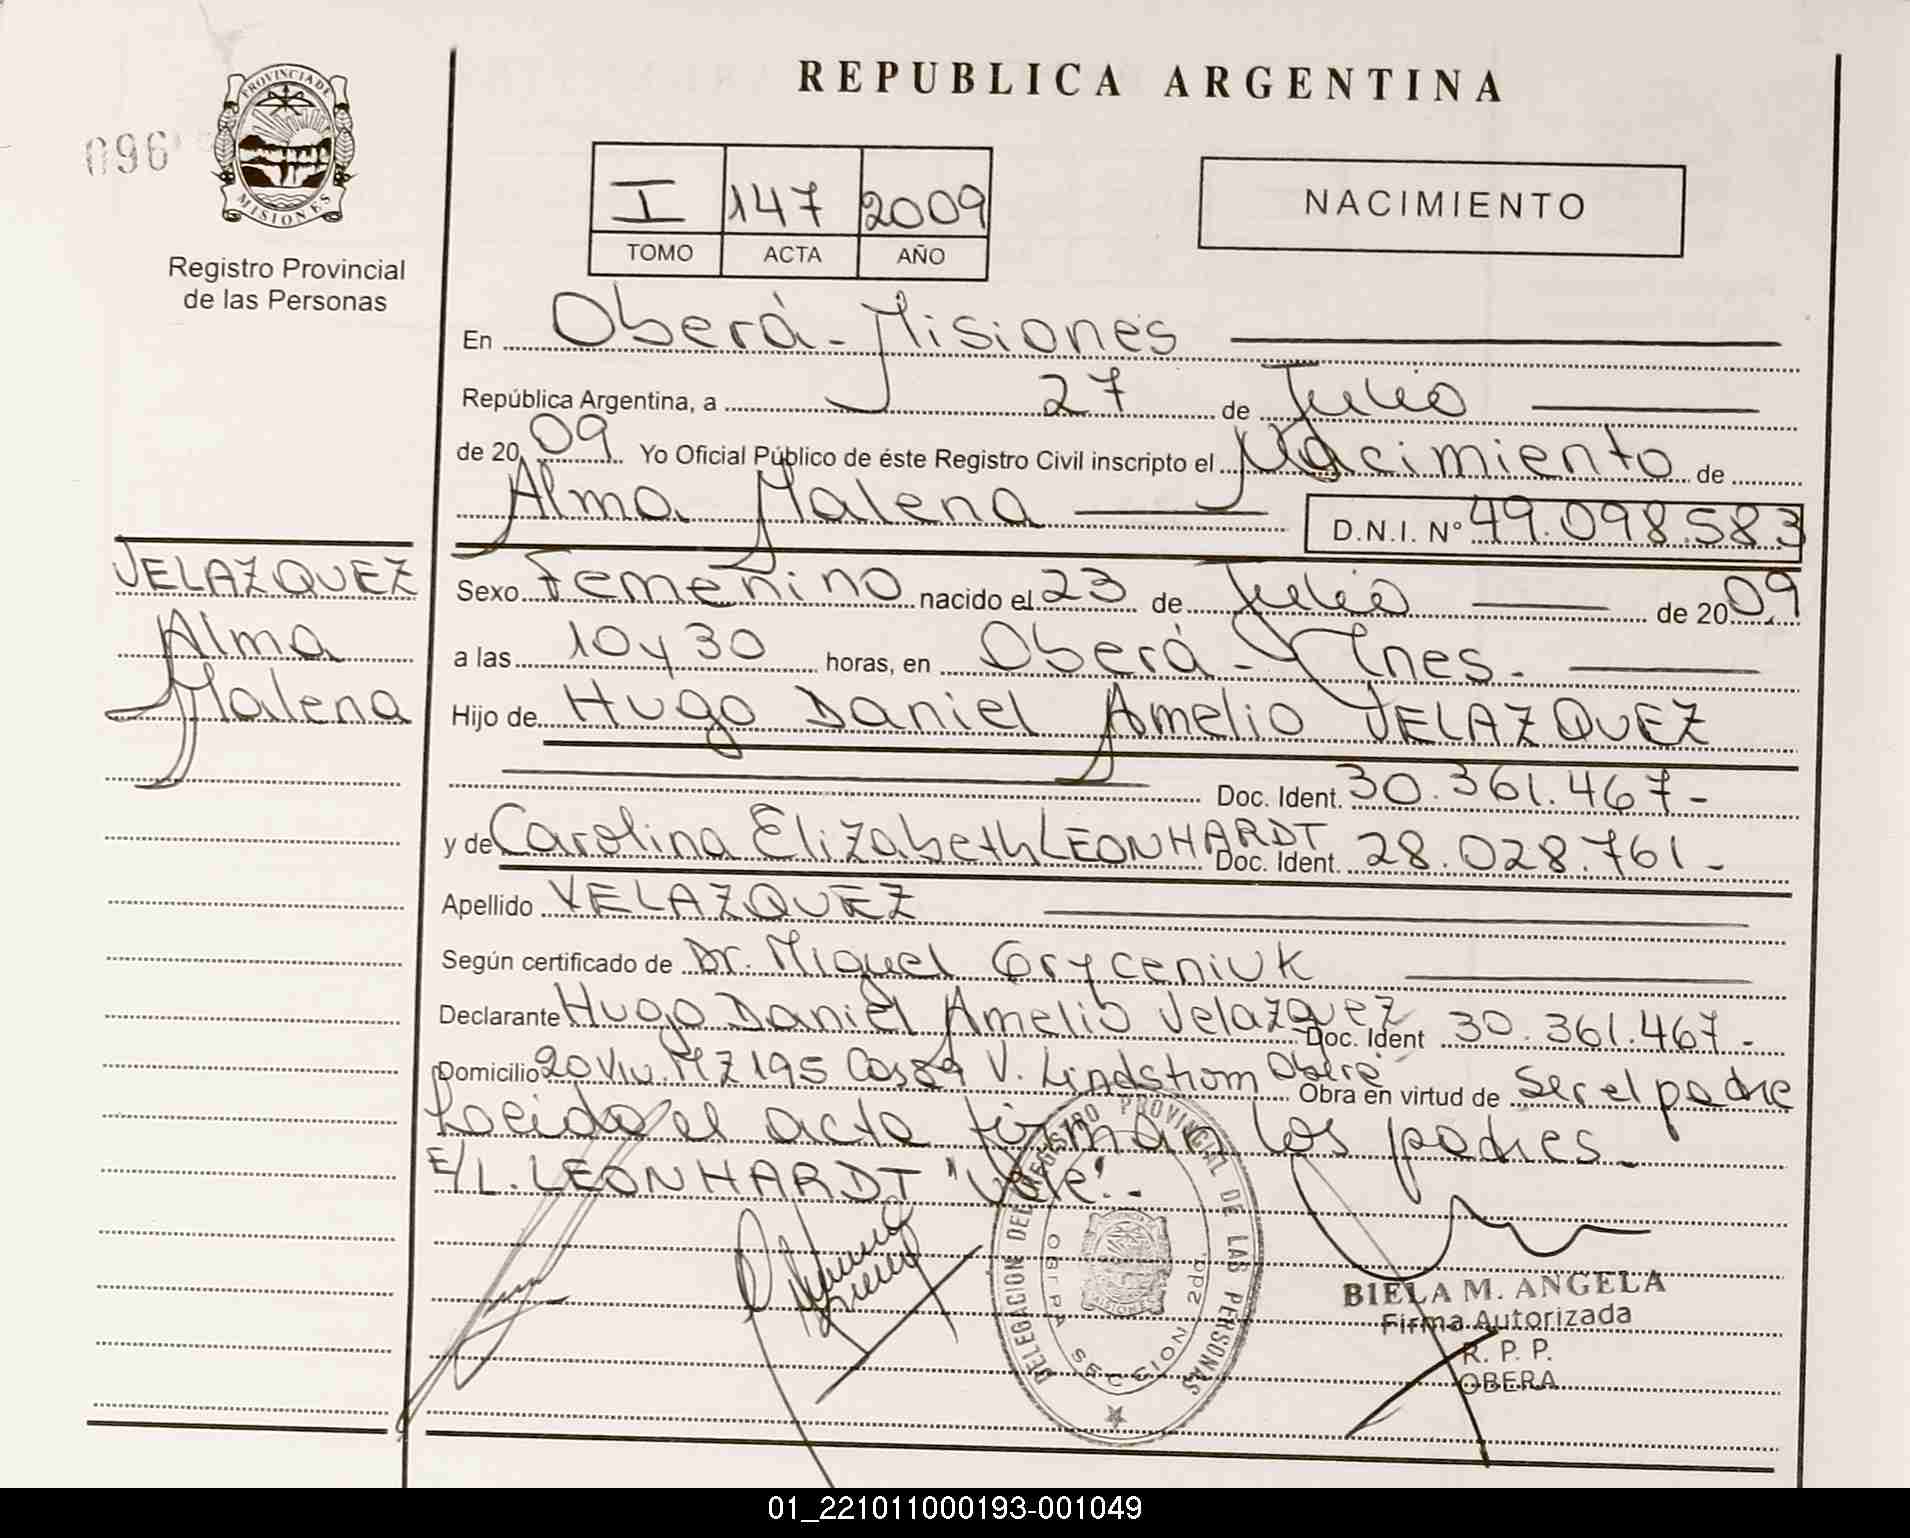 REPUBLICA ARGENTINA
096
PROVINCIA DE
MISIONES
Registro Provincial
de las Personas
I 147 2009
TOMO ACTA AÑO
NACIMIENTO
En Oberá - Misiones
República Argentina, a 27 de Julio
de 2009 Yo Oficial Público de éste Registro Civil inscripto el Nacimiento de
Alma Malena D.N.I. Nº 49.098.583
VELAZQUEZ
Alma
Malena
Sexo Femenino nacido el 23 de Julio de 2009
a las 10 y 30 horas, en Oberá - Mnes.
Hijo de Hugo Daniel Amelio VELAZQUEZ
Doc. Ident. 30.361.467-
y de Carolina Elizabeth LEONHARDT Doc. Ident. 28.028.761-
Apellido VELAZQUEZ
Según certificado de Dr. Miguel Gryceniuk
Declarante Hugo Daniel Amelio Velazquez Doc. Ident 30.361.467-
Domicilio 20 Viv. MZ 195 Cas 89 V. Lindstrom Oberá Obra en virtud de ser el padre
Leido el acta firman los padres.
E/L. LEONHARDT "Vale".-
DELEGACION DEL REGISTRO PROVINCIAL DE LAS PERSONAS
OBERA SECCION 2da.
MISIONES
BIELA M. ANGELA
Firma Autorizada
R. P. P.
OBERA
01_221011000193-001049